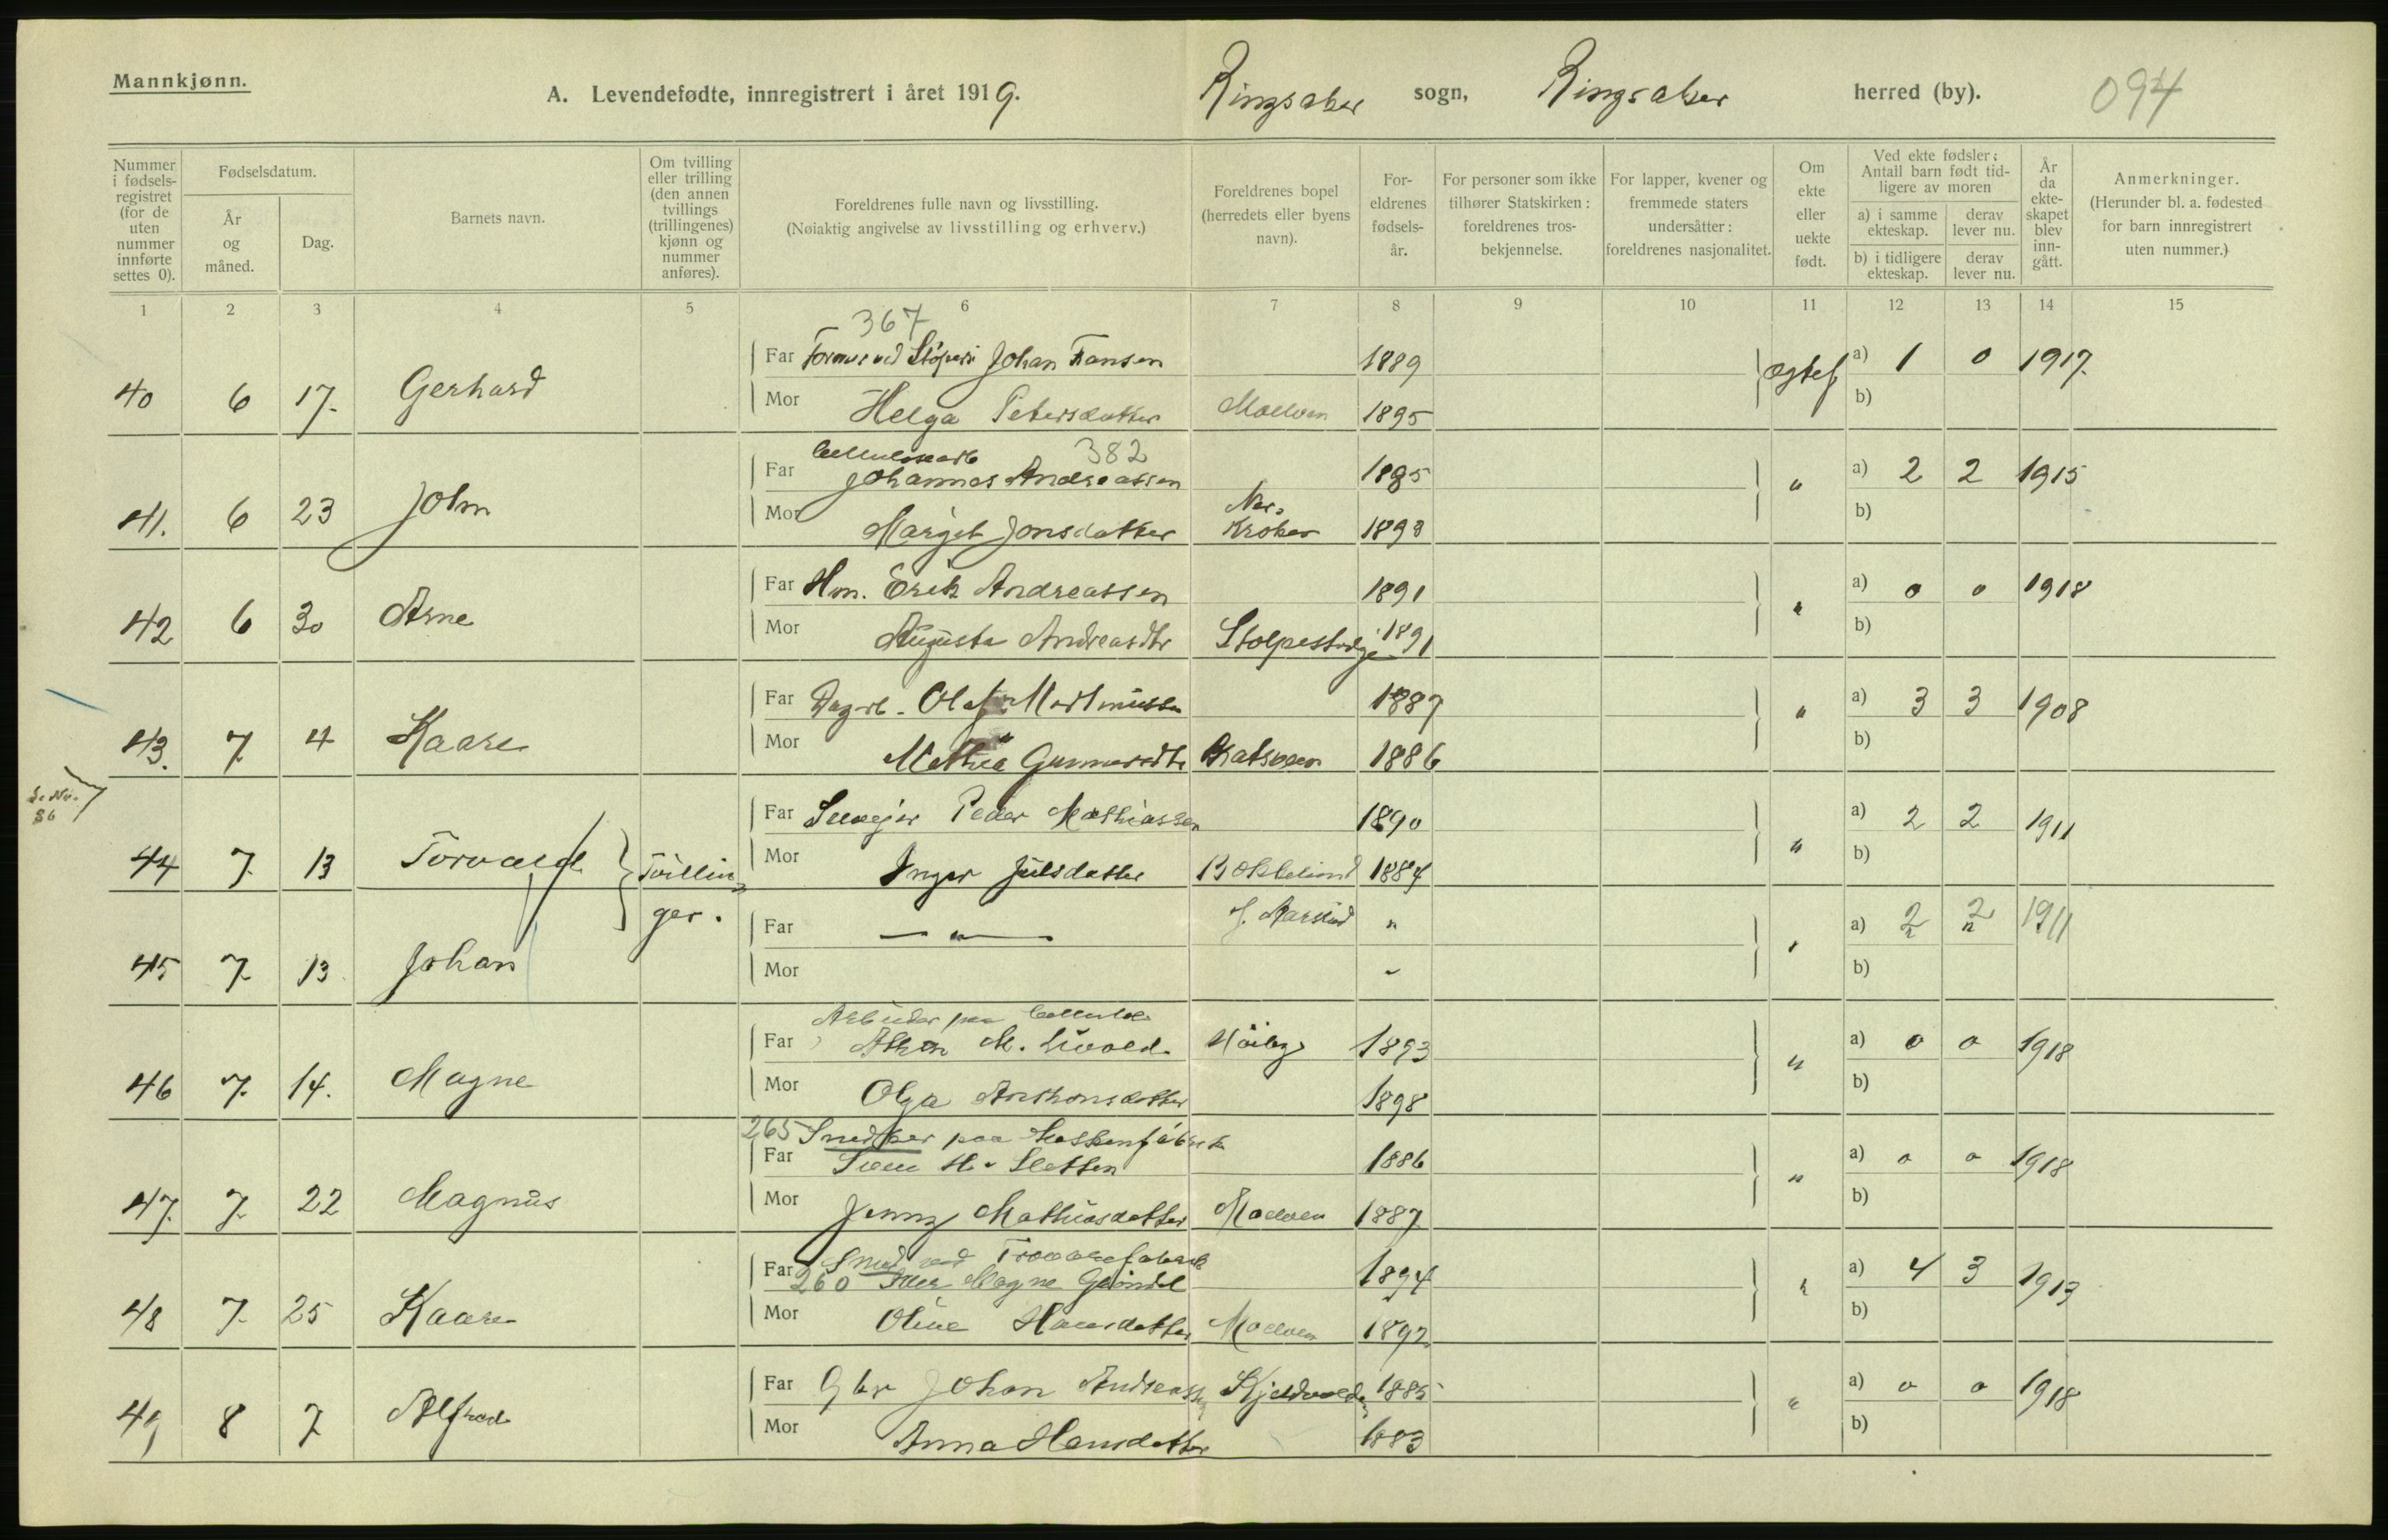 Mannkjønn.
A. Levendefødte, innregistrert i året 1919. Ringsaker sogn, Ringsaker herred (by). 094
Nummer i fødsels-registret (for de uten nummer innførte settes 0).
Fødselsdatum.
År og måned.
Dag.
Barnets navn.
Om tvilling eller trilling (den annen tvillings (trillingenes) kjønn og nummer anføres).
Foreldrenes fulle navn og livsstilling.
(Nøiaktig angivelse av livsstilling og erhverv.)
Foreldrenes bopel (herredets eller byens navn).
For-eldrenes fødsels-år.
For personer som ikke tilhører Statskirken: foreldrenes tros-bekjennelse.
For lapper, kvener og fremmede staters undersåtter: foreldrenes nasjonalitet.
Om ekte eller uekte født.
Ved ekte fødsler: Antall barn født tid-ligere av moren
a) i samme ekteskap.
derav lever nu.
b) i tidligere ekteskap.
derav lever nu.
År da ekte-skapet blev inn-gått.
Anmerkninger.
(Herunder bl. a. fødested for barn innregistrert uten nummer.)
1 2 3 4 5 6 7 8 9 10 11 12 13 14 15
367
Far Former ved Støperi Johan Hansen 1889 a) 1 0 1917.
40 6 17. Gerhard ægtef
Mor Helga Petersdatter Moelven 1895 b)
Cellulosearb 382
Far Johannes Andreassen 1895 a) 2 2 1915
41. 6 23 John "
Mor Margit Jonsdatter Kroken 1893 b)
Far Hm. Erik Andreassen 1891 a) 0 0 1918
42 6 30 Arne "
Mor Augusta Andreasdtr 1891 b)
Far Dagarb. Olaf Martinussen 1887 a) 3 3 1908
43. 7 4 Kaare "
Mor Mathea Gunnersdtr 1886 b)
Se Nr. 86
Far Peder Mathiassen 1890 a) 2 2 1911
44 7 13 Torvald Tvillin "
Mor Inger Julsdatter 1884 b)
ger.
Far — " — " a) 2 2 1911
45 7 13 Johan "
Mor b)
Arbeider paa Cellulose
Far M. 1893 a) 0 0 1918
46 7. 14. Magne "
Mor Olga Anthonsdatter 1898 b)
265 Snedker paa
Far Sven H. Sletten 1886 a) 0 0 1918
47. 7 22 Magnus "
Mor Jenny Mathiasdatter Moelven 1887 b)
Sned ved Trævarefabrik
Far 260 Magne 1894 a) 4 3 1913
48 7 25 Kaare "
Mor Oline Hansdatter Moelven 1892 b)
Far Gbr Johan Andreassen 1885 a) 0 0 1918
49 8 7 Alfred "
Mor Anna Hansdatter 1883 b)